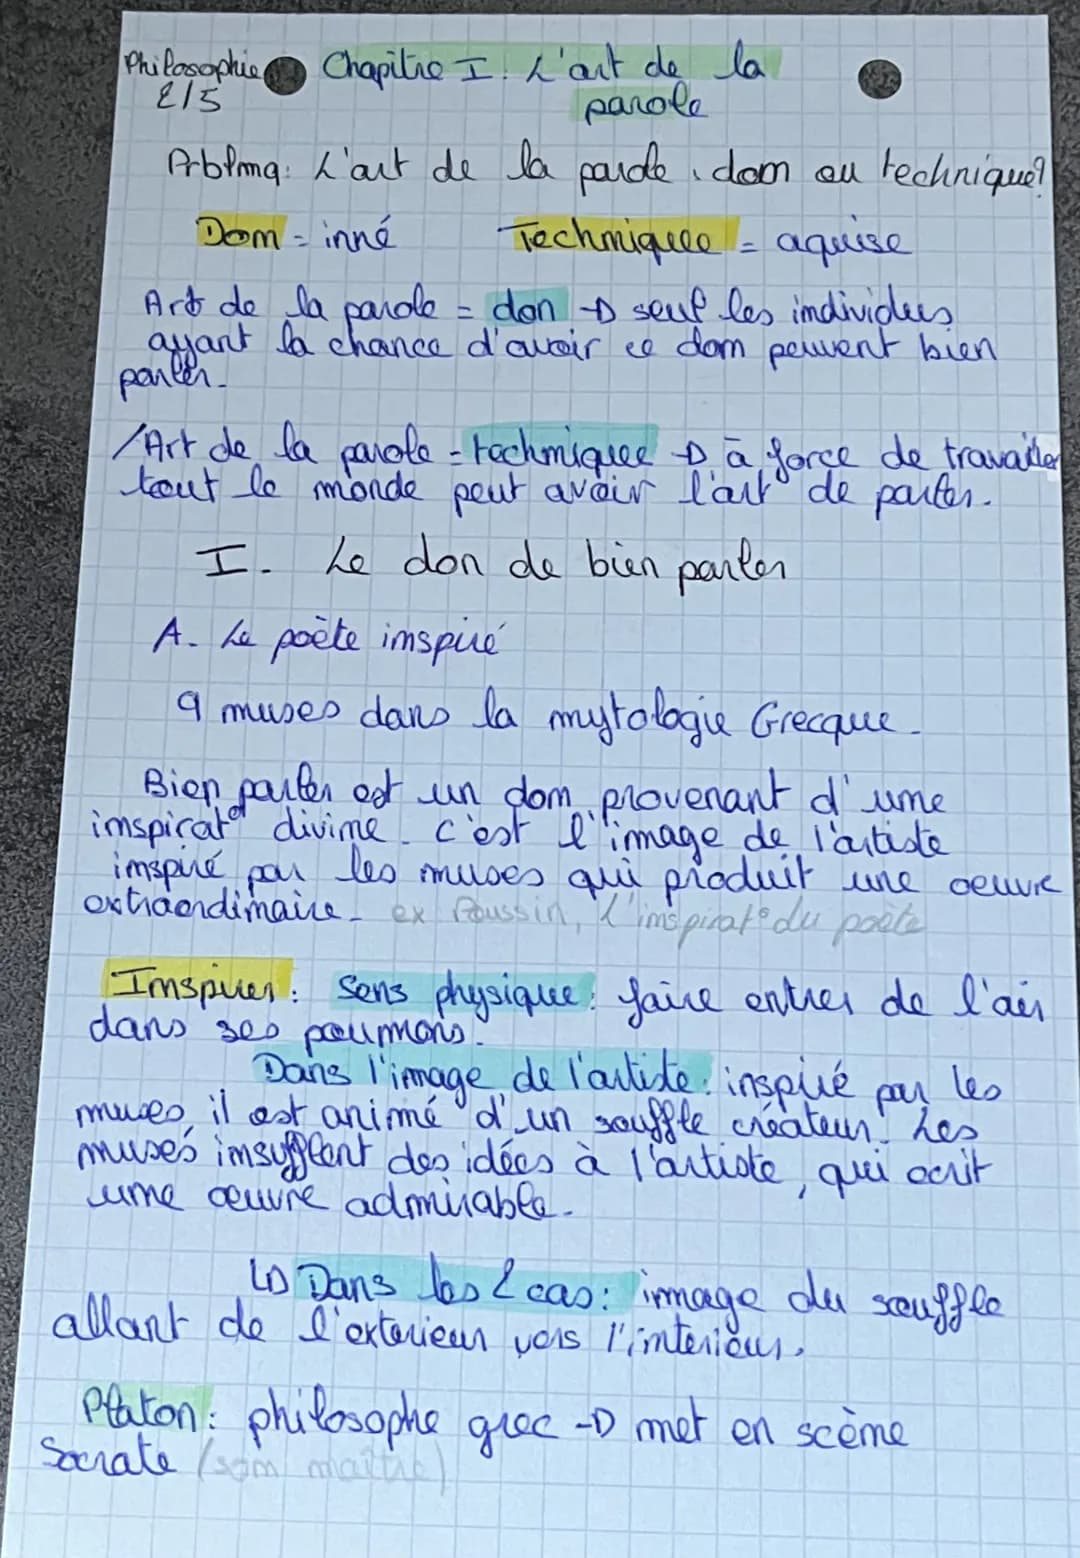 Philosophie Chapitre I: L'art de la
2/5 parole
Prblmq: L'art de la parole, don ou technique?
Don = inné Technique = aquise
Art de la parole = don → seul les individus
ayant la chance d'avoir ce don peuvent bien
parler.
/Art de la parole = technique → à force de travailler
tout le monde peut avoir l'art de parler.
I. Le don de bien parler
A. Le poète inspiré
9 muses dans la mytologie Grecque.
Bien parler est un don provenant d'une
inspirat° divine. c'est l'image de l'artiste
inspiré par les muses qui produit une oeuvre
extraordinaire. ex Poussin, L'inspirat° du poète
Inspirer: Sens physique: faire entrer de l'air
dans ses poumons.
Dans l'image de l'artiste: inspiré par les
muses, il est animé d'un souffle créateur. Les
muses insufflent des idées à l'artiste, qui écrit
une œuvre admirable.
↳ Dans les 2 cas: image du souffle
allant de l'exterieur vers l'interieur.
Platon: philosophe grec → met en scène
Socrate (son maître)